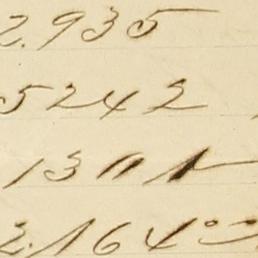 2.935
5242
1311
2.164